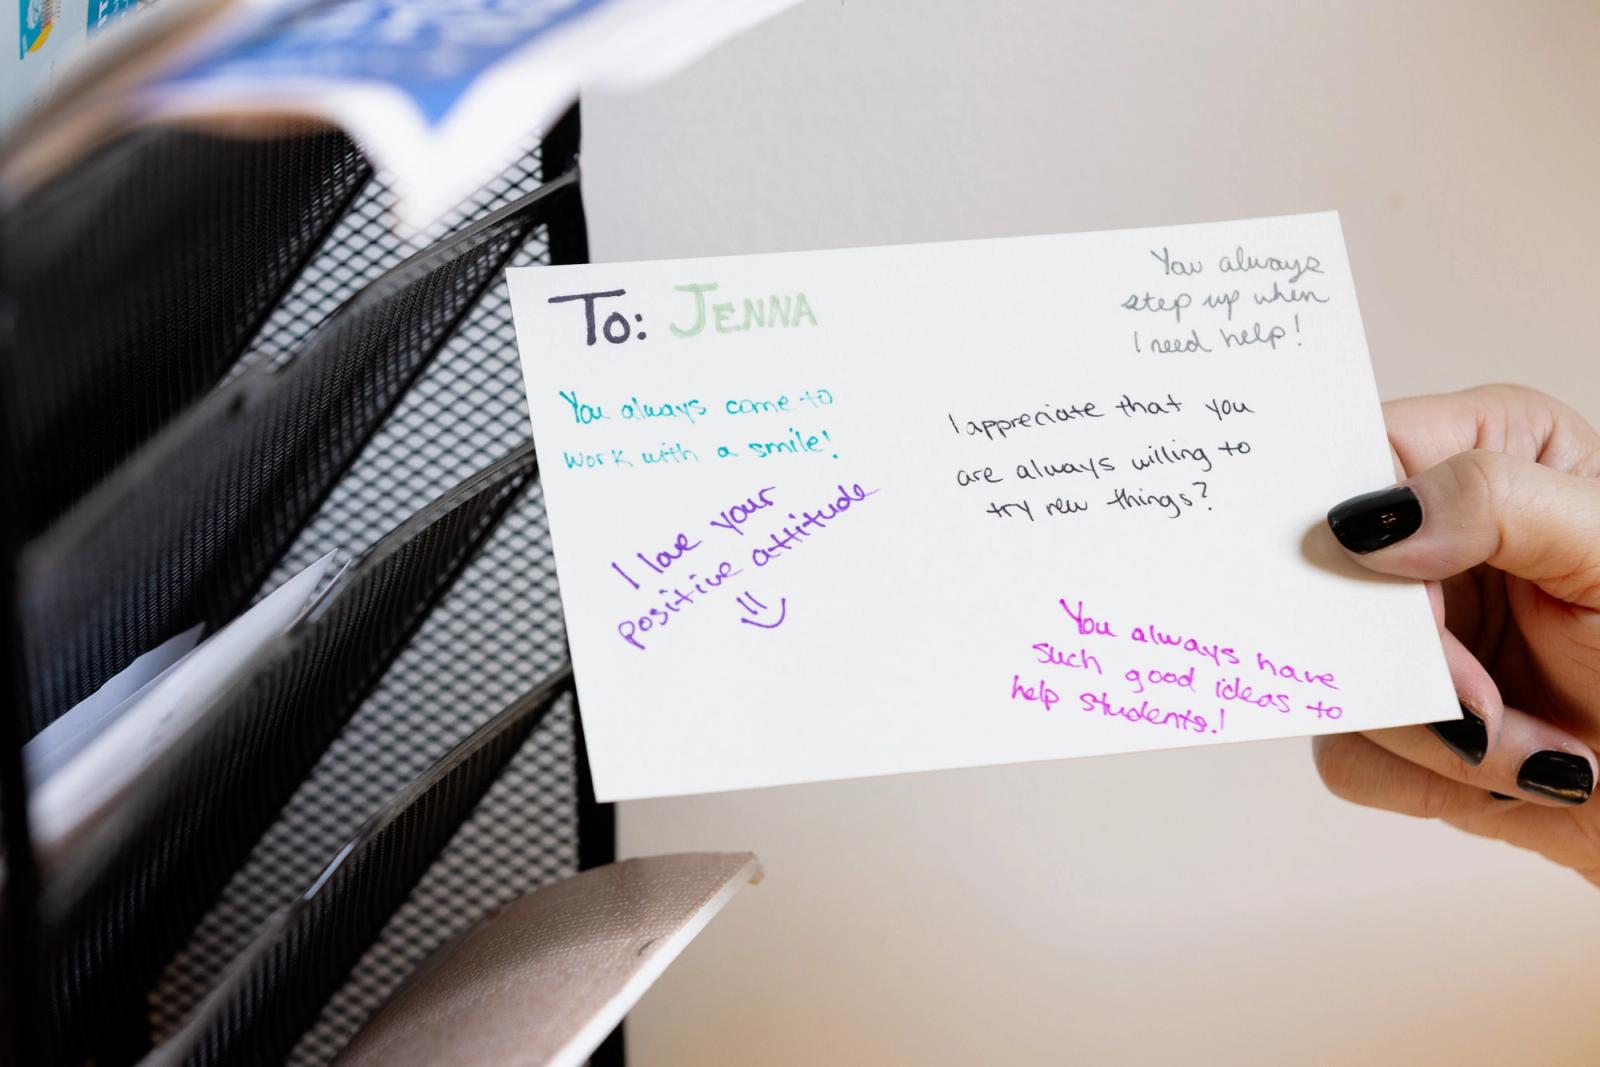 To: JENNA
You always
step up when
I need help!
You always come to
work with a smile!
I appreciate that you
are always willing to
try new things?
I love your
positive attitude
You always have
such good ideas to
help students!